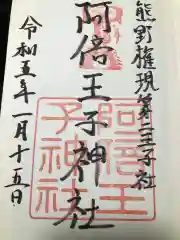 熊野権現第二王子社
阿倍王子神社
令和五年一月十五日
阿倍王
子神社